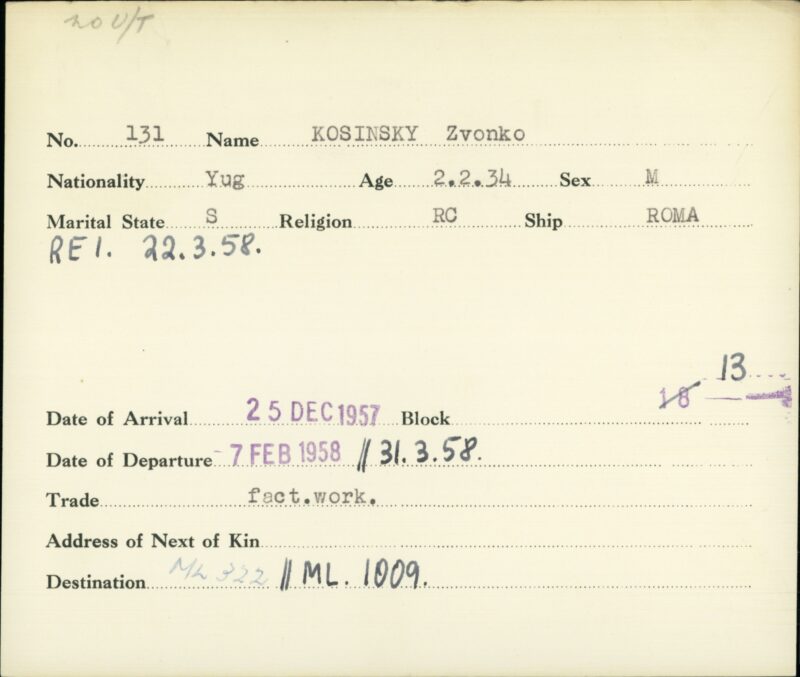 20 U/T
No. 131 Name KOSINSKY Zvonko
Nationality Yug Age 2.2.34 Sex M
Marital State S Religion RC Ship ROMA
RE 1. 22.3.58.
13
18
Date of Arrival 25 DEC 1957 Block
Date of Departure - 7 FEB 1958 // 31.3.58.
Trade fact.work.
Address of Next of Kin
Destination ML 322 // ML. 1009.